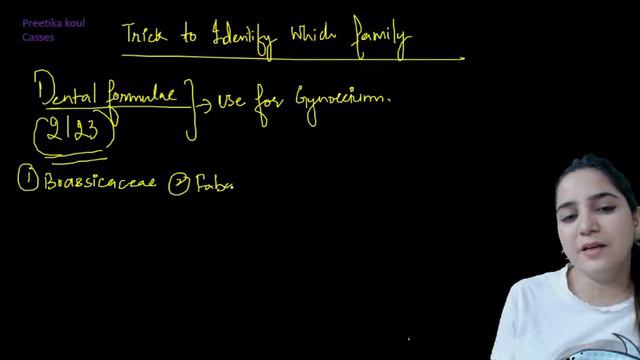 Preetika koul
Casses
Trick to Identify which family
Dental formulae → use for Gynoecium.
2123
① Brassicaceae ② Faba